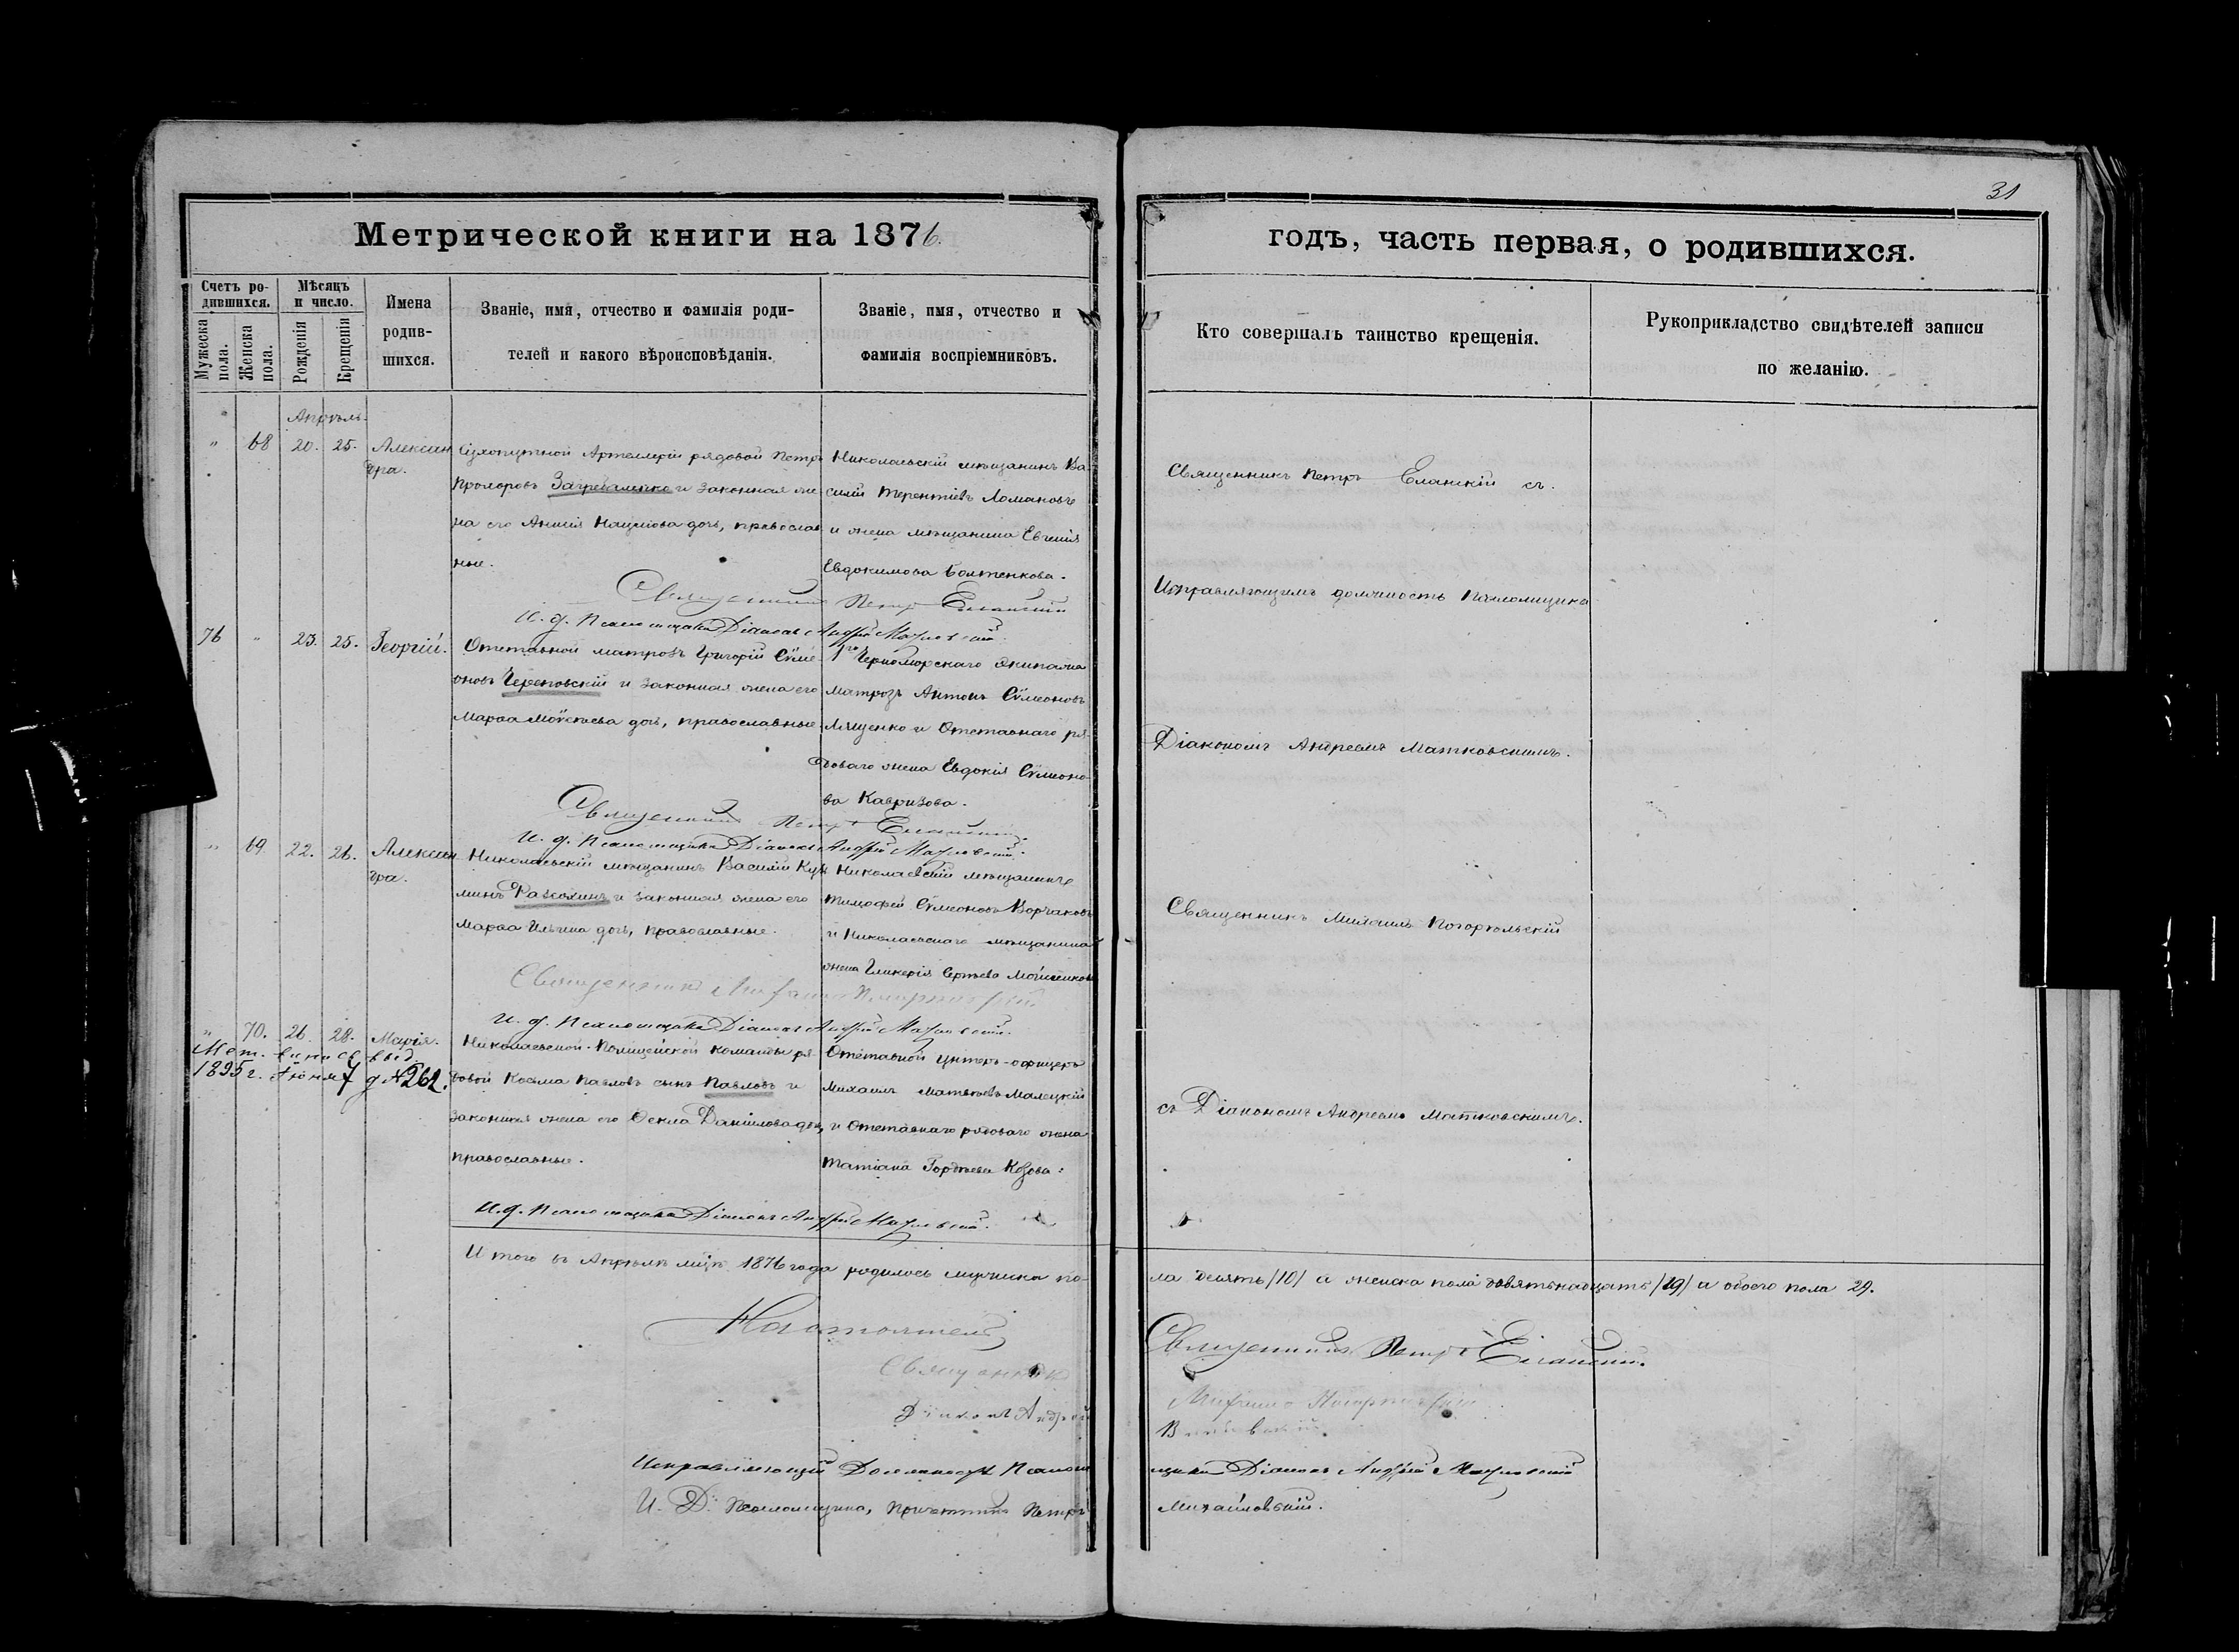 31
Метрической книги на 1876.
годъ, часть первая, о родившихся.
Счетъ ро-
дившихся.
Мужеска пола.
Женска пола.
Мѣсяцъ
и число.
Рожденія
Крещенія
Имена
родив-
шихся.
Званіе, имя, отчество и фамилія роди-
телей и какого вѣроисповѣданія.
Званіе, имя, отчество и
фамилія воспріемниковъ.
Кто совершалъ таинство крещенія.
Рукоприкладство свидѣтелей записи
по желанію.
Апрѣль.
" 68 20. 25. Александра.
Сухопутной Артеллеріи рядовой Петръ
Прохоровъ и законная же-
на его Наумова дочь, православ
ные.
Николаевскій мѣщанинъ Ва-
силій Терентіевъ
и жена мѣщанина Евгенія
Евдокимова Болтенкова.
Священникъ Петръ Еланскій съ.
Исправляющимъ должность Псаломщика
Діакономъ Андреемъ Матковскимъ.
Священникъ Петръ Еланскій
И. д. Псаломщика Діаконъ Андрей Матковскій.
76 " 23. 25. Георгій.
Отставной матрозъ Григорій Сѵме-
оновъ Череповскій и законная жена его
Марѳа Моѵсеева дочь, православные.
1го Черноморскаго Экипажа
матрозъ Антонъ Сѵмеоновъ
Лященко и Отставнаго ря-
доваго жена Евдокія Сѵмеоно-
ва
Священникъ Петръ Еланскій.
И. д. Псаломщика Діаконъ Андрей Матковскій.
" 69 22. 26. Александра.
Николаевскій мѣщанинъ Василій Кузь
минъ и законная жена его
Марѳа Ильина дочь, православные.
Николаевскій мѣщанинъ
Тимофей Сѵмеоновъ Корчаковъ
и Николаевскаго мѣщанина
жена Гликерія
Священникъ Михаилъ Погорѣльскій
Священникъ Михаилъ Погорѣльскій
И. д. Псаломщика Діаконъ Андрей Матковскій.
" 70. 26. 28. Марія.
Мет. выпись выд.
1895 г. Іюня 7 д №262.
Николаевской Полицейской команды ря-
довой Косьма Павловъ сынъ Павловъ и
законная жена его Ѳекла Даніилова дочь,
православные.
Отставной унтеръ-офицеръ
Михаилъ Матвѣевъ Малецкій
и Отставнаго рядоваго жена
Татіана Гордѣева
съ Діакономъ Андреемъ Матковскимъ.
И. д. Псаломщика Діаконъ Андрей Матковскій.
Итого въ Апрѣлѣ 1876 года родилось мужеска по-
ла десять /10/ а женска пола девятьнадцать /19/ а обоего пола 29.
Настоятель Священникъ Петръ Еланскій.
Священникъ Михаилъ Погорѣльскій
Діаконъ Андрей
Исправляющій Должность Псалом
щика Діаконъ Андрей Матковскій
И. Д. Псаломщика, Причетникъ Петръ
Михайловскій.